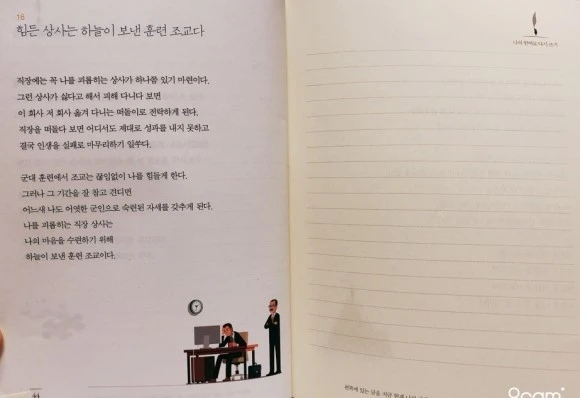 16
힘든 상사는 하늘이 보낸 훈련 조교다
직장에는 꼭 나를 괴롭히는 상사가 하나쯤 있기 마련이다.
그런 상사가 싫다고 해서 피해 다니다 보면
이 회사 저 회사 옮겨 다니는 떠돌이로 전락하게 된다.
직장을 떠돌다 보면 어디서도 제대로 성과를 내지 못하고
결국 인생을 실패로 마무리하기 일쑤다.
군대 훈련에서 조교는 끊임없이 나를 힘들게 한다.
그러나 그 기간을 잘 참고 견디면
어느새 나도 어엿한 군인으로 숙련된 자세를 갖추게 된다.
나를 괴롭히는 직장 상사는
나의 마음을 수련하기 위해
하늘이 보낸 훈련 조교이다.
나의 언어로 다시 쓰기
왼쪽에 있는 글을